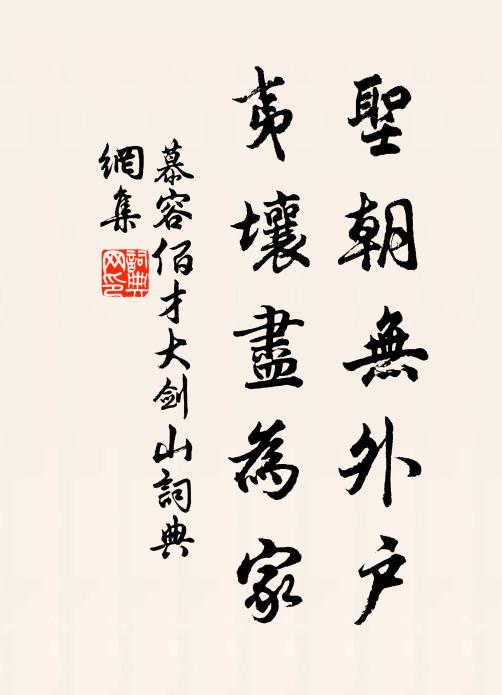 聖朝無外戶
夷壤盡為家
慕容佰才大剑山詞典
網集
詞典网印